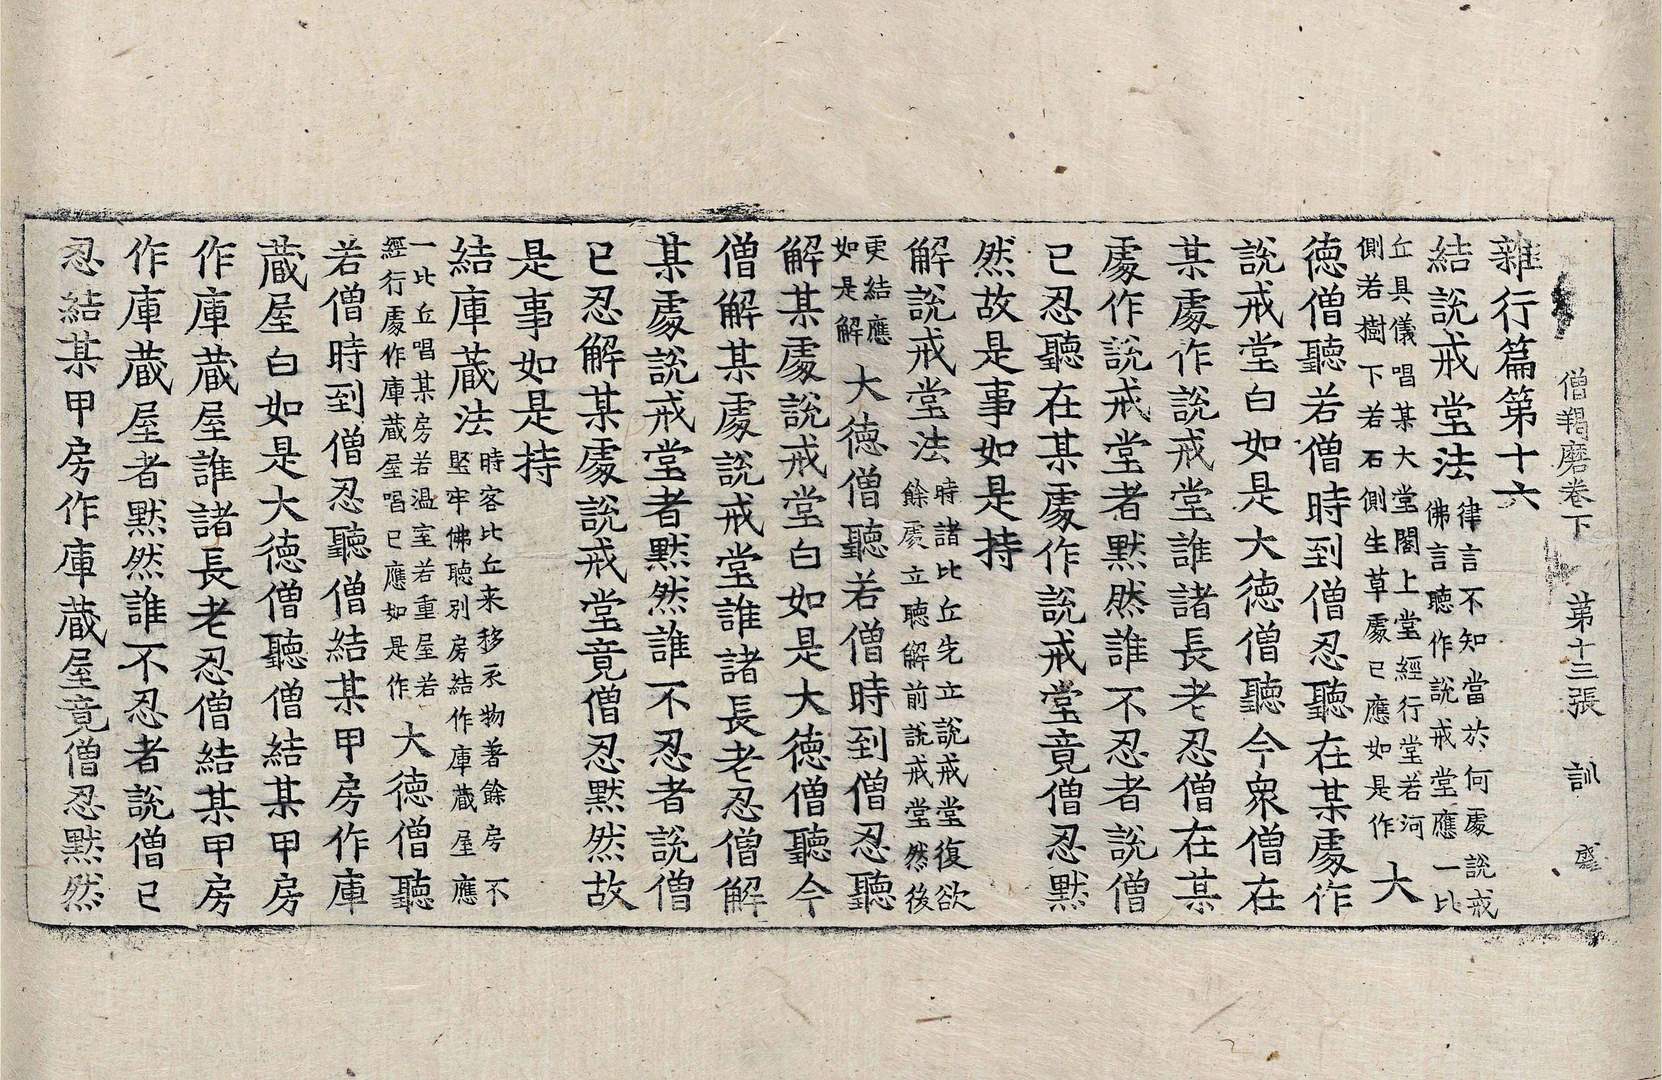 僧羯磨卷下 第十三張 訓
雜行篇第十六
結說戒堂法律言不知當於何處說戒佛言聽作說戒堂應一比
丘具儀唱某大堂閣上堂經行堂若河側若樹下若石側生草處已應如是作大
德僧聽若僧時到僧忍聽在某處作
說戒堂白如是大德僧聽今衆僧在
某處作說戒堂誰諸長老忍僧在某
處作說戒堂者默然誰不忍者說僧
已忍聽在某處作說戒堂竟僧忍默
然故是事如是持
解說戒堂法時諸比丘先立說戒堂復欲餘處立聽解前說戒堂然後
更結應如是解大德僧聽若僧時到僧忍聽
解某處說戒堂白如是大德僧聽今
僧解某處說戒堂誰諸長老忍僧解
某處說戒堂者默然誰不忍者說僧
已忍解某處說戒堂竟僧忍默然故
是事如是持
結庫藏法時客比丘来移禾物著餘房不堅牢佛聽別房結作庫藏屋應
一比丘唱某房若温室若重屋若經行處作庫藏屋唱已應如是作大德僧聽
若僧時到僧忍聽僧結某甲房作庫
藏屋白如是大德僧聽僧結某甲房
作庫藏屋誰諸長老忍僧結某甲房
作庫藏屋者默然誰不忍者說僧已
忍結某甲房作庫藏屋竟僧忍默然